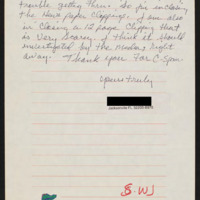 trouble getting them. So I'm enclosing
the News paper Clippings. I am also
in Closing a 12 page Clipping that
is Very Scarey. I think it should
investigated by the Media Right
away. Thank you For C-Span.
Yours truly
Jacksonville Fl.